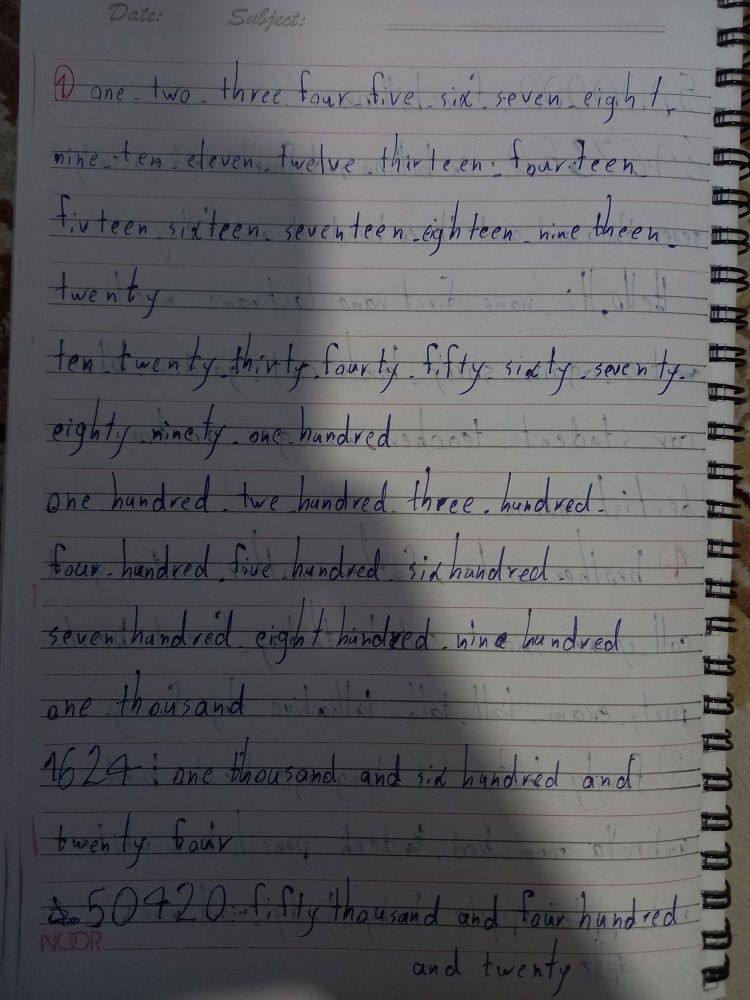 Date: Subject:
① one two three four five six seven eight
nine ten eleven twelve thirteen fourteen
fivteen sixteen seventeen eighteen nine theen
twenty
ten twenty thirty fourty fifty sixty seventy
eighty ninety one hundred
one hundred twe hundred three hundred
four hundred five hundred six hundred
seven hundred eight hundred nine hundred
one thousand
1624: one thousand and six hundred and
twenty four
50420: fifty thousand and four hundred
NOOR
and twenty